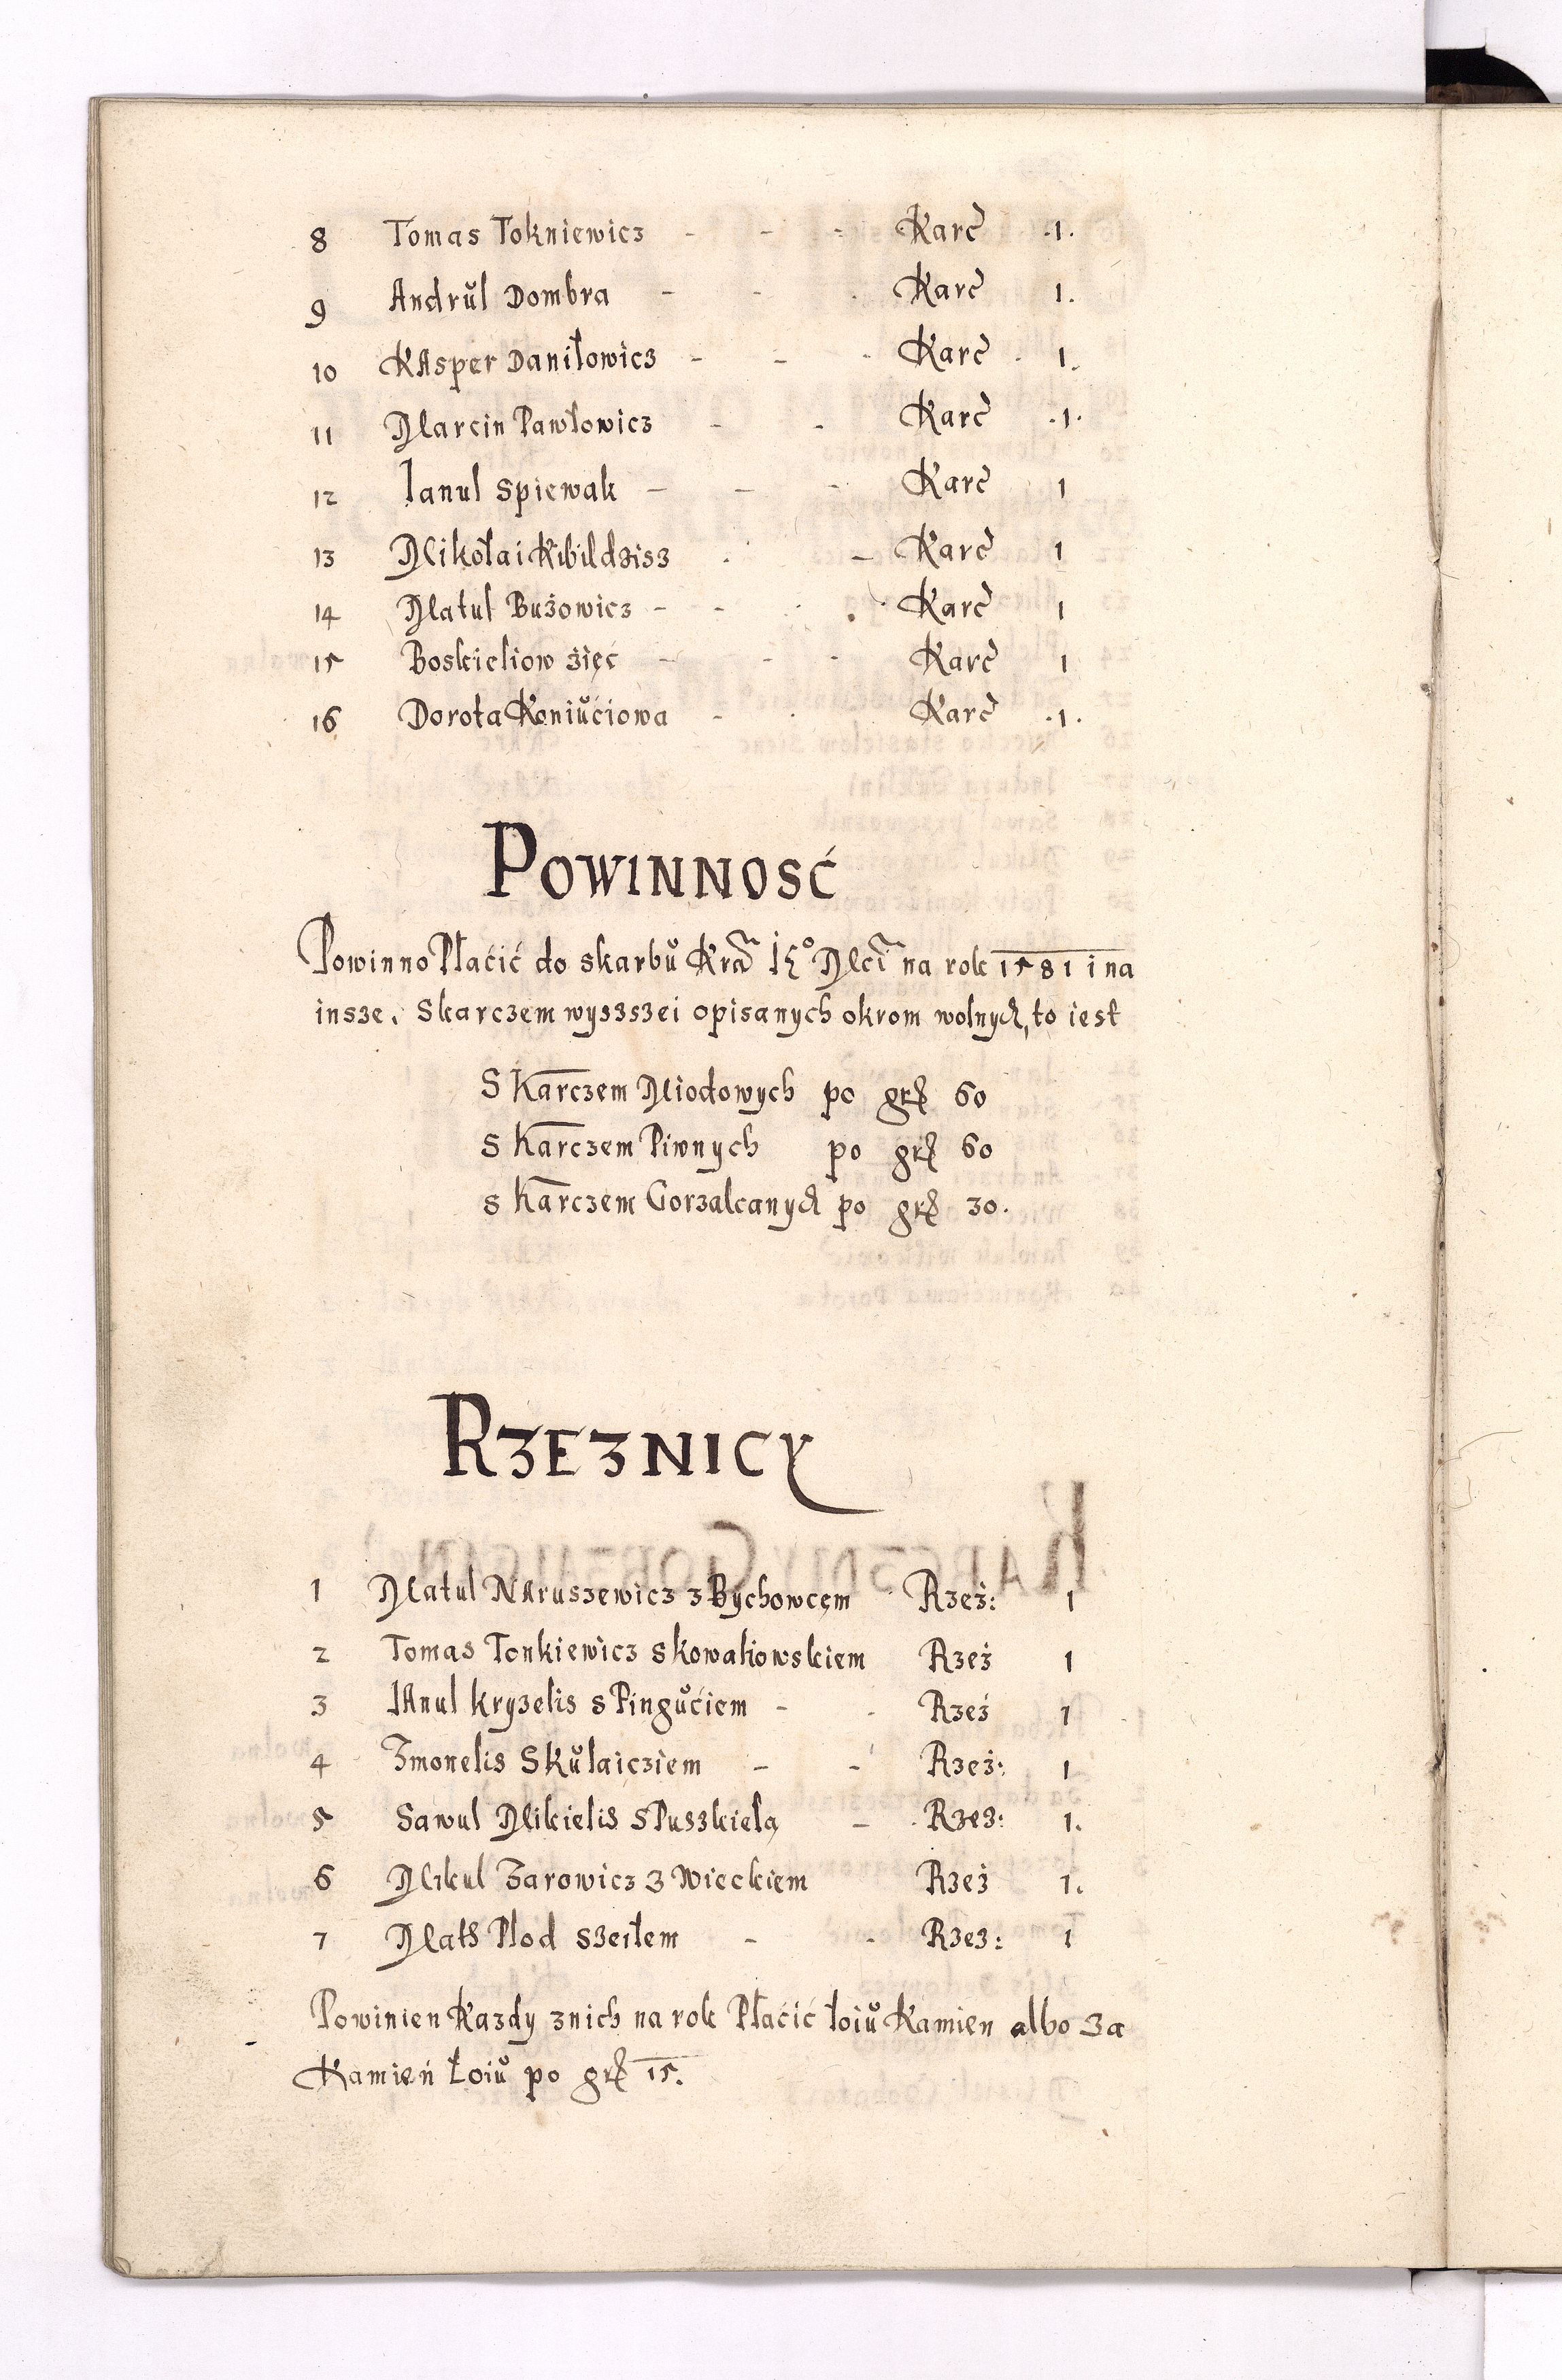 8 Tomas Tokniewicz - - - Karč .1.
9 Andrůl Dombra - - . Karč 1.
10 KAsper Daniłowicz - - - Karč . 1.
11 Marcin Pawłowicz - - Karč .1.
12 Ianul Spiewak - - - Karč 1
13 Mikołai Kibildzisz . - Karč 1
14 Matul Bużowicz - - . Karč 1
15 Boskieliow żięć - - - Karč 1
16 Dorota Koniůciowa - . Karč .1.
POWINNOSĆ
Powinno Płaćić do skarbů Kra na rok 1581 i na
insze. Skarczem wyszszei opisanych okrom wolnych, to iest
S karczem Miodowych po grß 60
s karczem Piwnych po grß 60
s karczem Gorzalcanych po grß 30.
RZEZNICY
1 Matul NAruszewicz z Bychowcem Rzeż: 1
2 Tomas Tonkiewicz s kowalowskiem Rzeż 1
3 IAnul kryzelis s Pingůćiem - - Rzeż 1
4 Zmonelis Skůlaicziem - - Rzeż: 1
5 Sawul Mikielis s Puszkielą - . Rzez: 1.
6 Mikul Zarowicz z Wieckiem Rzeż 1.
7 Plod szeiłem - - Rzez: 1
Powinien Kazdy znich na rok Płaćić łoiů Kamien albo za
Kamień łoiů po grß 15.